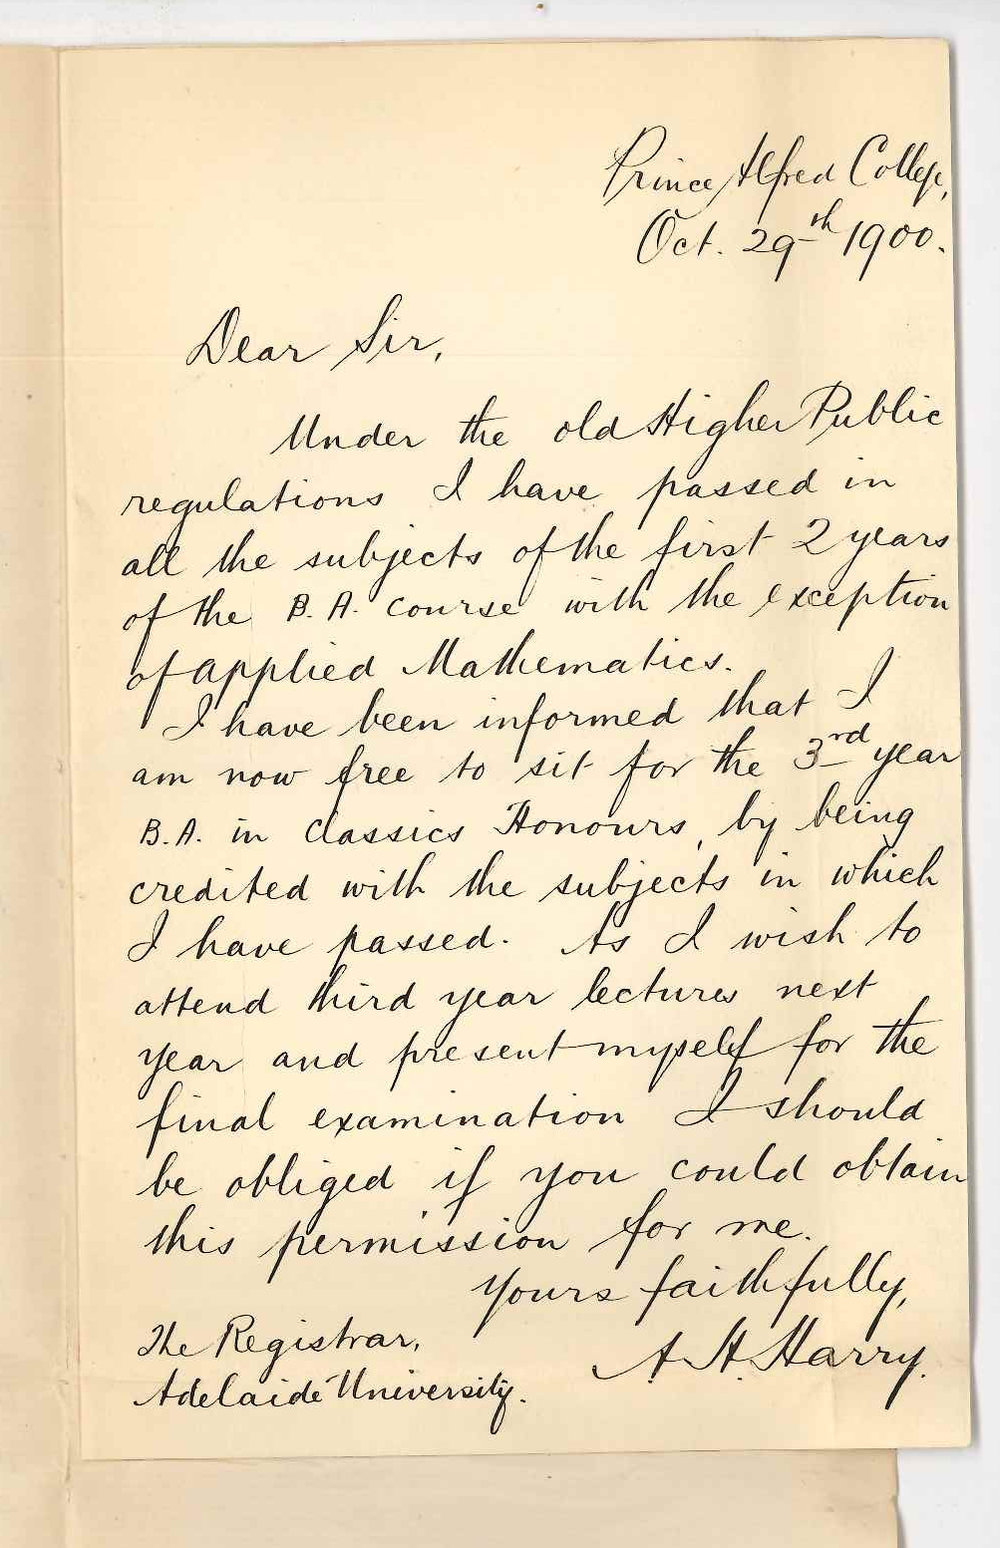 Prince Alfred College,
Oct. 29th 1900.
Dear Sir,
Under the old Higher Public
regulations I have passed in
all the subjects of the first 2 years
of the B.A. course with the exception
of applied Mathematics.
I have been informed that I
am now free to sit for the 3rd year
B.A. in Classics Honours, by being
credited with the subjects in which
I have passed. As I wish to
attend third year lectures next
year and present myself for the
final examination I should
be obliged if you could obtain
this permission for me.
Yours faithfully,
A. H. Harry.
The Registrar,
Adelaide University.